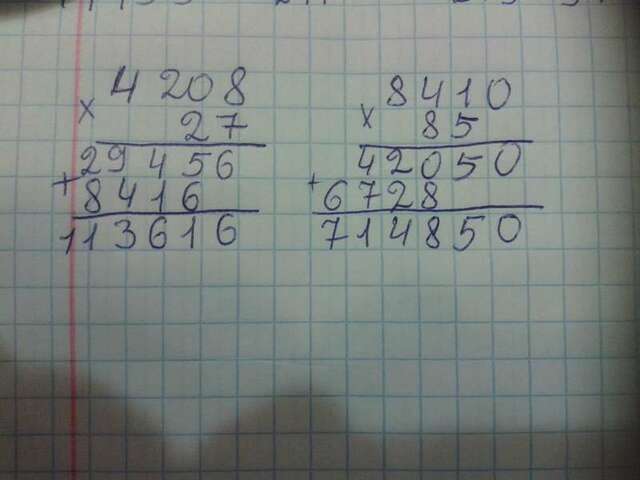 4208
× 27
29456
+ 8416
113616
8410
× 85
42050
+ 6728
714850